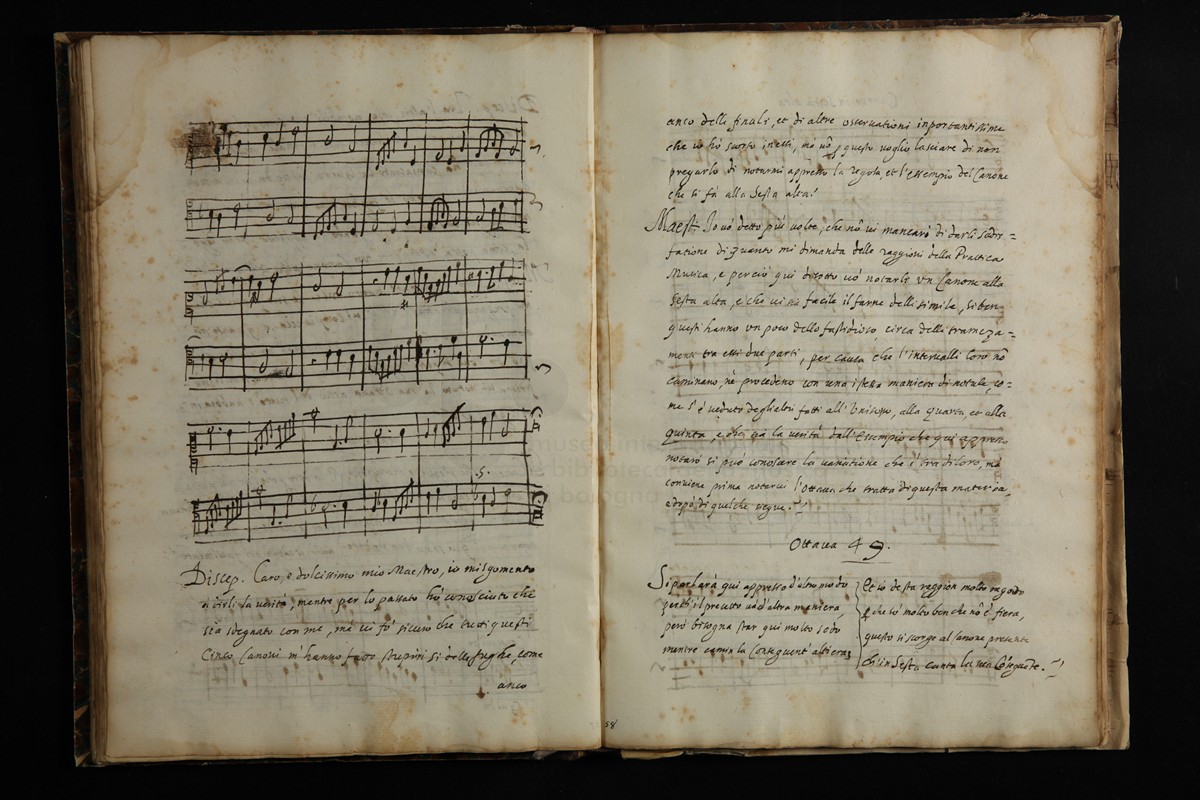 Discep. Caro, e dolcissimo mio Maestro, io mi sgomento
à dirli la verità, mentre per lo passato hò conosciuto che
stà sdegnato con me, mà vi fò sicuro che tutti questi
Cinco Canoni m'hanno fatto stupire si delle fughe, come
anco
anco delli finali, et di altre osservationi inportantissime
che io hò scorto in essi, mà nõ p questo voglio lasciare di non
pregarlo di notarmi appresso la regola et l'essempio del Canone
che si fà alla Sesta alta.
Maest. Io vò detto più volte, che nõ vi mancarò di darli sodis=
fatione di quanto mi dimanda delle raggioni della Prattica
Musica, e perciò qui disotto vò notarli vn Canone alla
Sesta alta, e che vi sia facile il farne delli simili, si ben
questi hanno vn poco dello fastidioso, circa della trameza=
menti tra essi due parti, per causa che l'intervalli loro nõ
caminano, nè procedeno con una istessa maniera di notule, co=
me s'è veduto degli altri fatti all'Unisono, alla quarta, et alla
quinta, e che sia la verità dall'Essempio che qui appresso
notarò si può conoscere la variatione che è tra di loro, mà
conviene prima notarvi l'Ottava che tratta di questa materia,
e dopò di quelche segue.
Ottava 49.
Si parlarà qui appresso d'altro modo
perch'il precetto và d'altra maniera,
però bisogna star qui molto sodo
mentre camin la Conseguent' altiera;
Et io de sta raggion molto ne godo
e che sò molto ben che nõ è fiera,
questo si scorge al Canone presente
ch'in Sesta canta la sua Cõseguente.
58